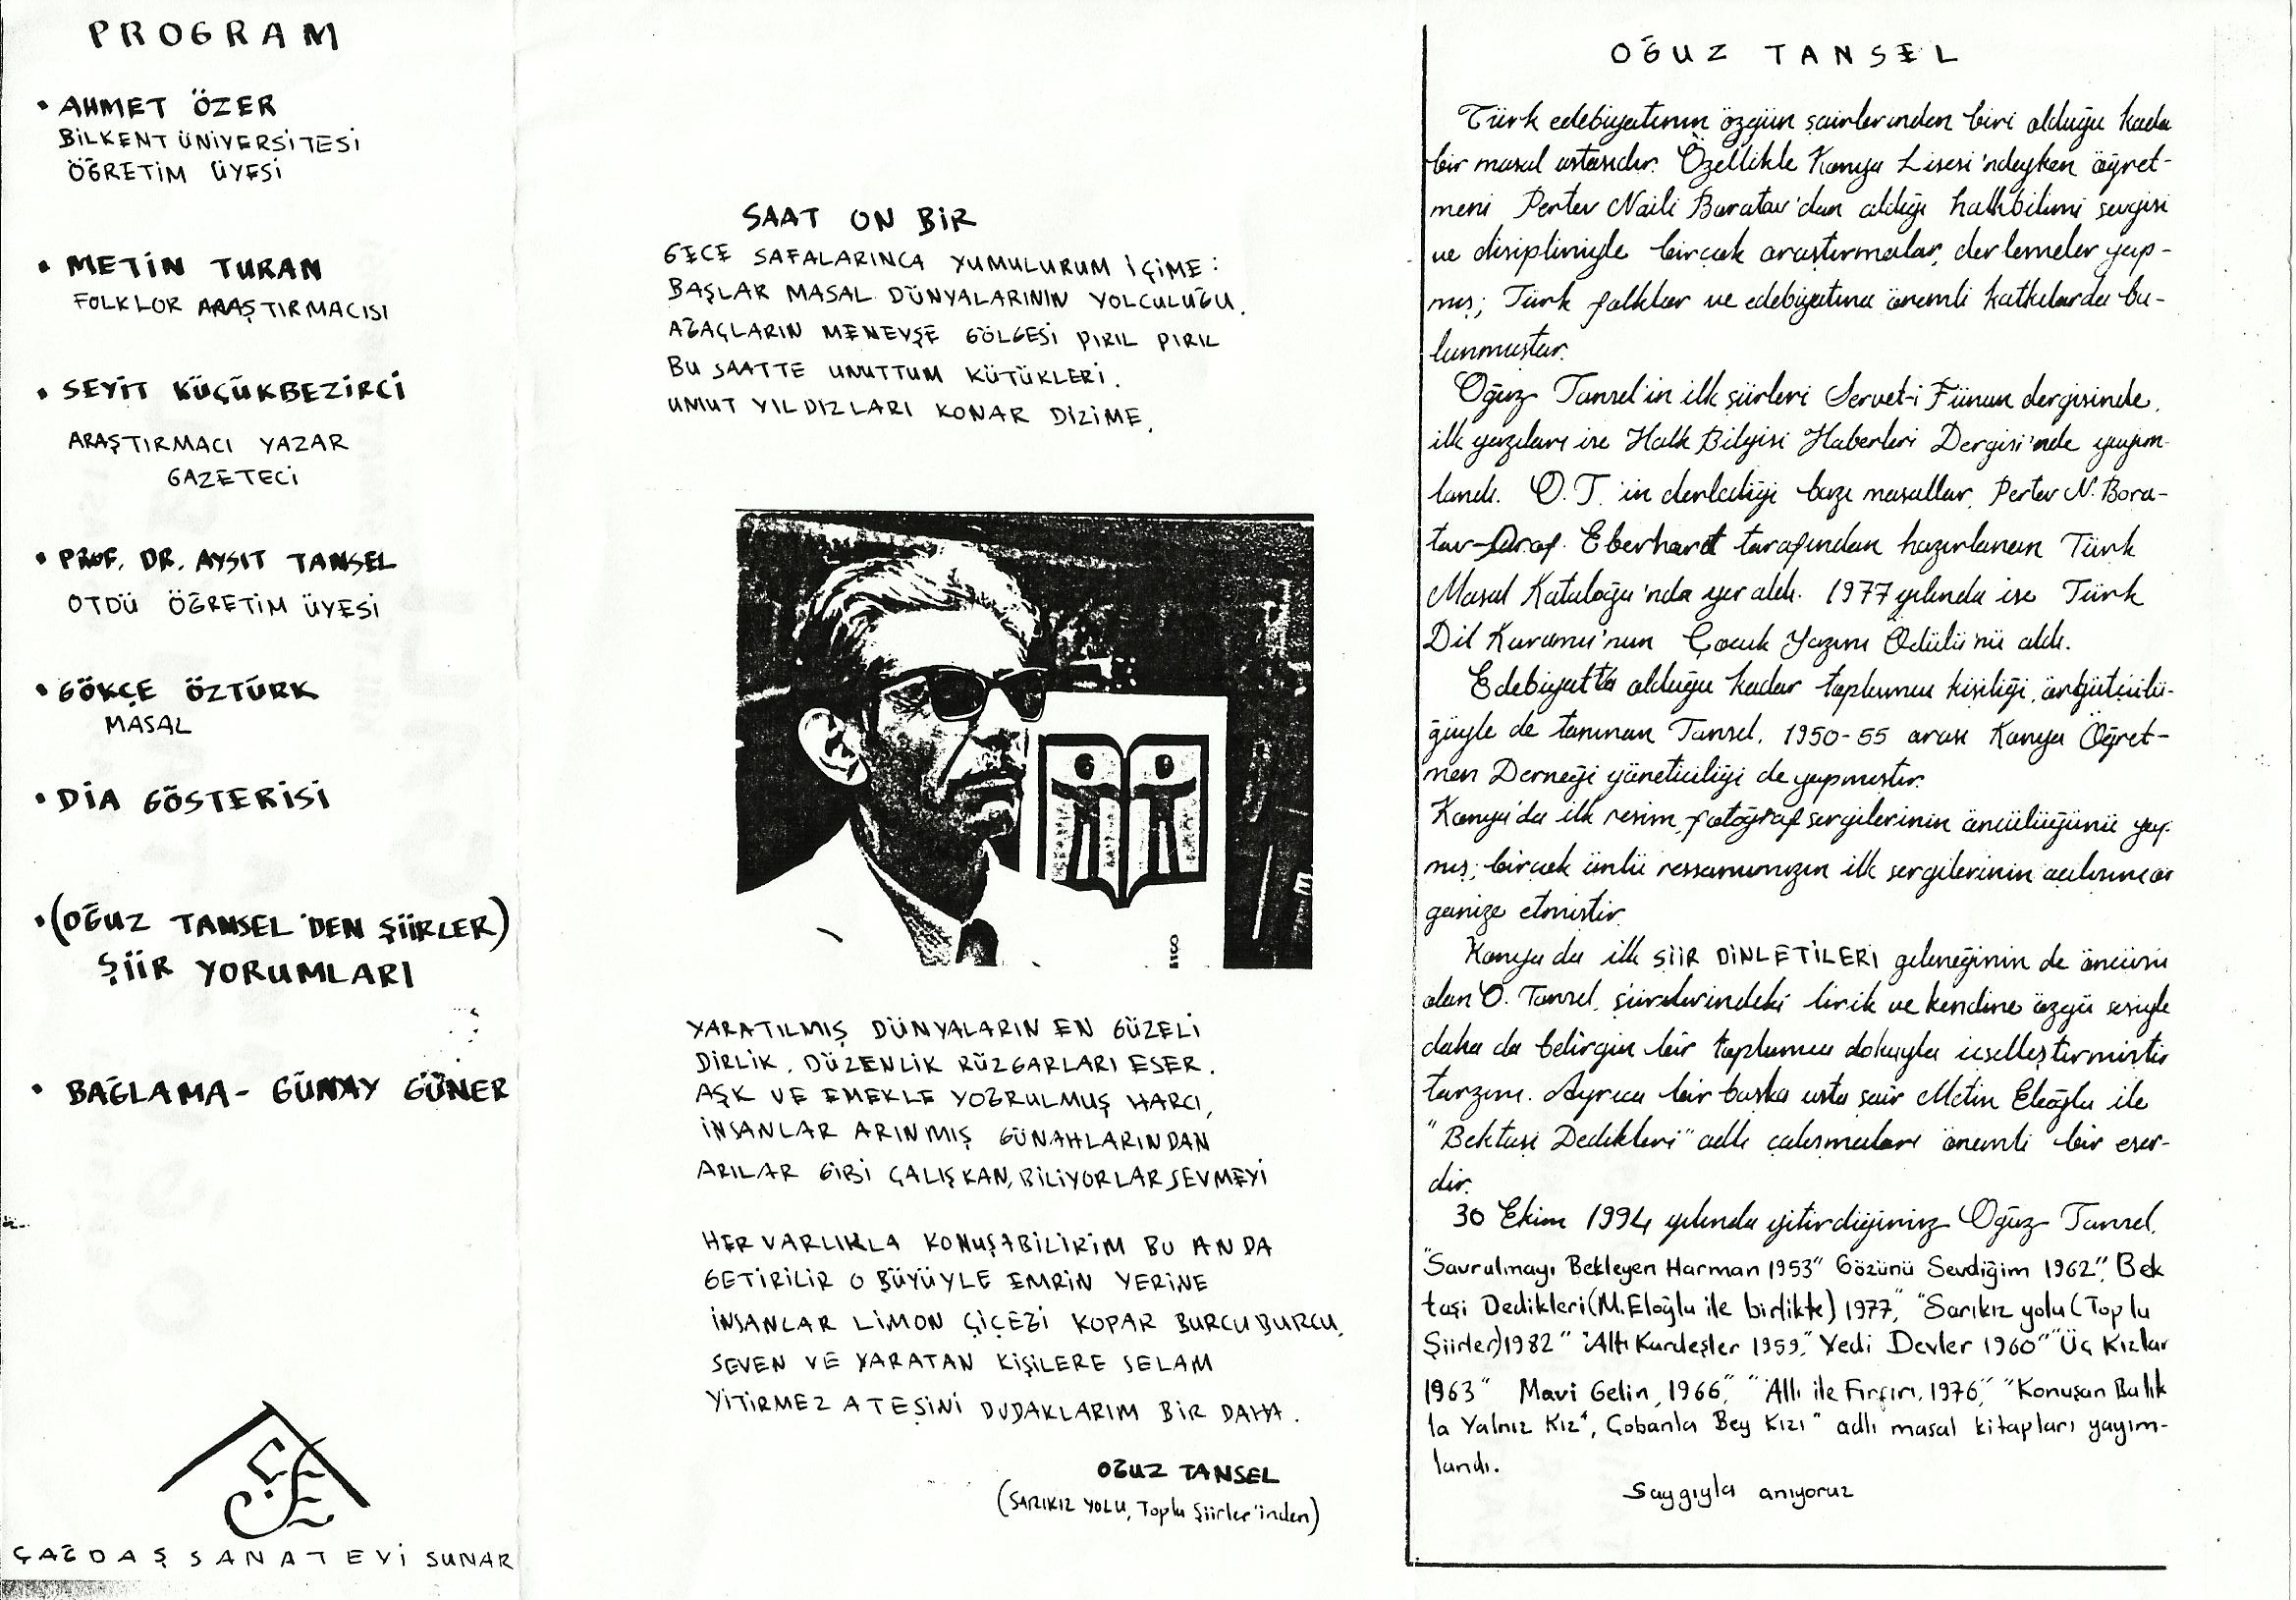 PROGRAM
• AHMET ÖZER
BİLKENT ÜNİVERSİTESİ
ÖĞRETİM ÜYESİ
• METİN TURAN
FOLKLOR ARAŞTIRMACISI
• SEYİT KÜÇÜKBEZİRCİ
ARAŞTIRMACI YAZAR
GAZETECİ
• PROF. DR. AYSIT TANSEL
OTDÜ ÖĞRETİM ÜYESİ
• GÖKÇE ÖZTÜRK
MASAL
• DİA GÖSTERİSİ
• (OĞUZ TANSEL'DEN ŞİİRLER)
ŞİİR YORUMLARI
• BAĞLAMA- GÜNAY GÜNER
ÇAĞDAŞ SANATEVİ SUNAR
SAAT ON BİR
GECE SAFALARINCA YUMULURUM İÇİME:
BAŞLAR MASAL DÜNYALARININ YOLCULUĞU.
AĞAÇLARIN MENEVŞE GÖLGESİ PIRIL PIRIL
BU SAATTE UNUTTUM KÜTÜKLERİ.
UMUT YILDIZLARI KONAR DİZİME.
YARATILMIŞ DÜNYALARIN EN GÜZELİ
DİRLİK, DÜZENLİK RÜZGARLARI ESER.
AŞK VE EMEKLE YOĞRULMUŞ HARCI,
İNSANLAR ARINMIŞ GÜNAHLARINDAN
ARILAR GİBİ ÇALIŞKAN, BİLİYORLAR SEVMEYİ
HER VARLIKLA KONUŞABİLİRİM BU ANDA
GETİRİLİR O BÜYÜYLE EMRİN YERİNE
İNSANLAR LİMON ÇİÇEĞİ KOPAR BURCU BURCU,
SEVEN VE YARATAN KİŞİLERE SELAM
YİTİRMEZ ATEŞİNİ DUDAKLARIM BİR DAHA.
OĞUZ TANSEL
(SARIKIZ YOLU, Toplu Şiirler'inden)
OĞUZ TANSEL
Türk edebiyatının özgün şairlerinden biri olduğu kada
bir masal ustasıdır. Özellikle Konya Lisesi'ndeyken öğret-
meni Pertev Naili Boratav'dan aldığı halkbilimi sevgisi
ve disipliniyle birçok araştırmalar, derlemeler yap-
mış; Türk folklor ve edebiyatına önemli katkılarda bu-
lunmuştur.
Oğuz Tansel'in ilk şiirleri Servet-i Fünun dergisinde,
ilk yazıları ise Halk Bilgisi Haberleri Dergisi'nde yayım-
landı. O.T.'in derlediği bazı masallar, Pertev N. Bora-
tav-Prof. Eberhard tarafından hazırlanan Türk
Masal Kataloğu'nda yer aldı. 1977 yılında ise Türk
Dil Kurumu'nun Çocuk Yazını Ödülü'nü aldı.
Edebiyatta olduğu kadar toplumcu kişiliği, örgütçülü-
ğüyle de tanınan Tansel, 1950-55 arası Konya Öğret-
men Derneği yöneticiliği de yapmıştır.
Konya'da ilk resim, fotoğraf sergilerinin öncülüğünü yap-
mış; birçok ünlü ressamımızın ilk sergilerinin açılımını or
ganize etmiştir.
Konya'da ilk ŞİİR DİNLETİLERİ geleneğinin de öncüsü
olan O. Tansel, şiirlerindeki lirik ve kendine özgü sesiyle
daha da belirgin bir toplumcu dokuyla içselleştirmiştir
tarzını. Ayrıca bir başka usta şair Metin Eloğlu ile
"Bektaşi Dedikleri" adlı çalışmaları önemli bir eser-
dir.
30 Ekim 1994 yılında yitirdiğimiz Oğuz Tansel,
"Savrulmayı Bekleyen Harman 1953" Gözünü Sevdiğim 1962", Bek
taşi Dedikleri (M.Eloğlu ile birlikte) 1977", "Sarıkız yolu (Toplu
Şiirler) 1982" "Altı Kardeşler 1959," Yedi Devler 1960" "Üç Kızlar
1963" Mavi Gelin, 1966", "Allı ile Fırfırı, 1976", "Konuşan Balık
la Yalnız Kız", Çobanla Bey Kızı" adlı masal kitapları yayım-
landı.
Saygıyla anıyoruz